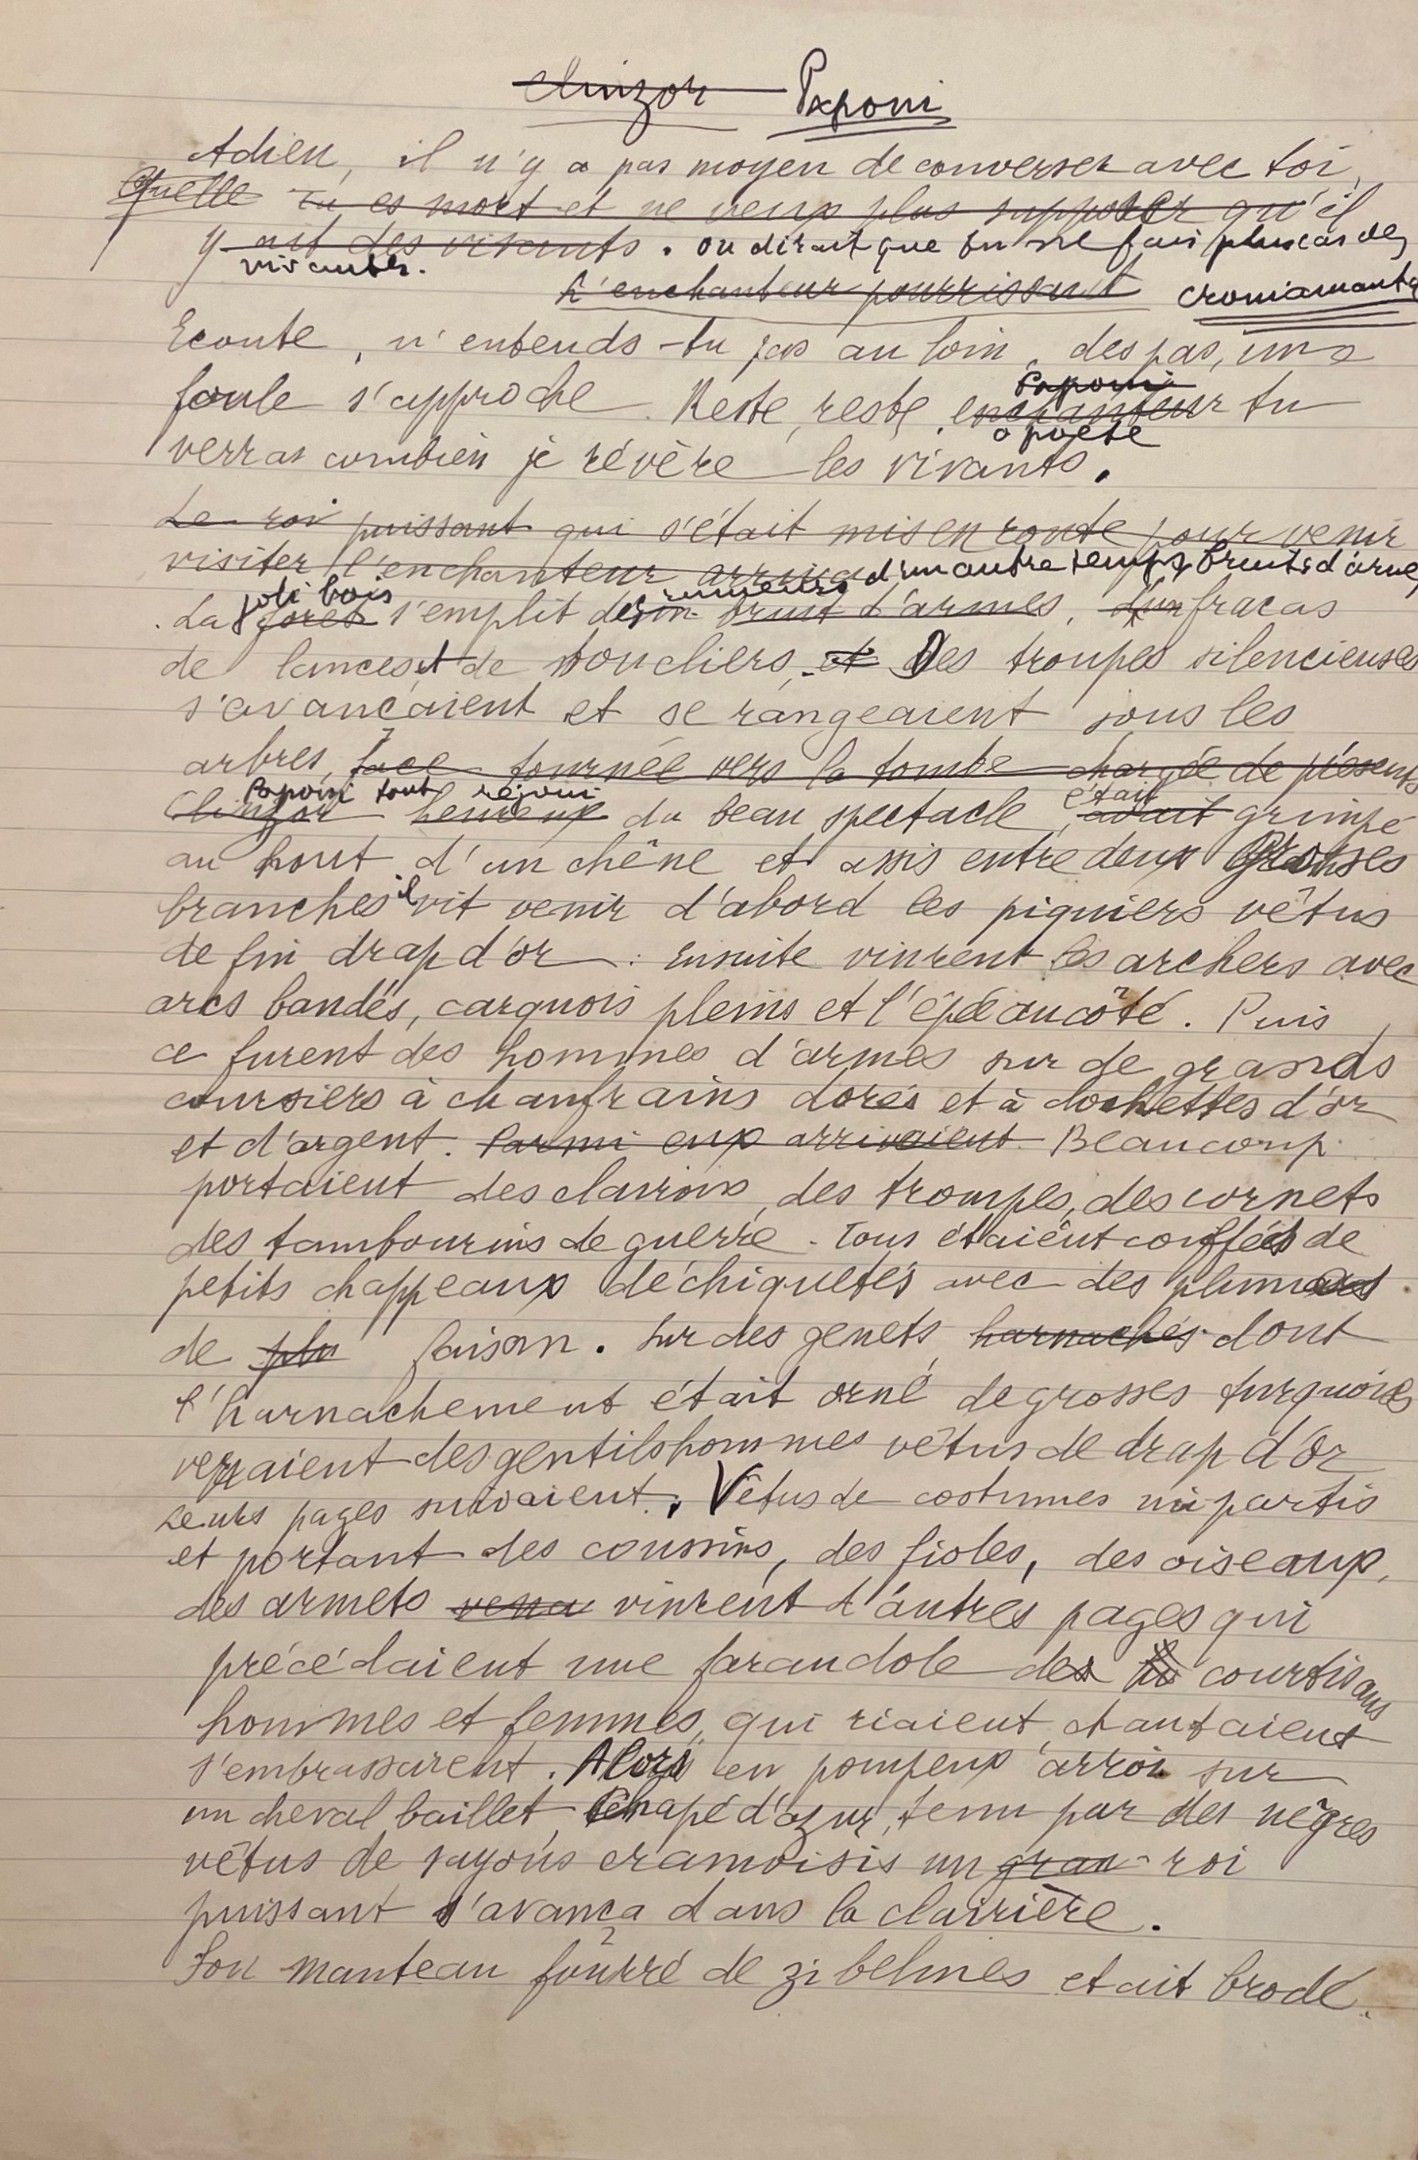 Clinzor Paponi
Adieu, il n'y a pas moyen de converser avec toi,
Quelle Tu es mort et ne veux plus supposer qu'il
y ait des vivants. on dirait que tu ne fais plus cas des
vivants.
L'enchanteur pourrissant Croniamantal
Ecoute, n'entends-tu pas au loin, des pas, une
Paponi
foule s'approche. Reste, reste, enchanteur tu
o poète
verras combien je révère les vivants.
Le roi puissant qui s'était mis en route pour venir
visiter l'enchanteur arriva d'un autre temps, bruits d'armes,
joli bois rumeurs
La forêt s'emplit des un bruit d'armes, d'un fracas
de lances et de boucliers, et Des troupes silencieuses
s'avançaient et se rangeaient sous les
arbres, face tournée vers la tombe chargée de présents
Paponi tout réjoui était
Clinzor heureux du beau spectacle, avait grimpé
au haut d'un chêne et assis entre deux grosses
branches il vit venir d'abord les piquiers vêtus
de fin drap d'or. Ensuite vinrent les archers avec
arcs bandés, carquois pleins et l'épée au côté. Puis
ce furent des hommes d'armes sur de grands
coursiers à chanfrains dorés et à clochettes d'or
et d'argent. Parmi eux arrivaient Beaucoup
portaient des clairons, des trompes, des cornets
des tambourins de guerre. Tous étaient coiffés de
petits chappeaux déchiquetés avec des plumes
de plu faisan. Sur des genets, harnachés dont
l'harnachement était orné de grosses turquoises
venaient des gentilshommes vêtus de drap d'or
Leurs pages suivaient. Vêtus de costumes mi partis
et portant des coussins, des fioles, des oiseaux,
des armets vena vinrent d'autres pages qui
précédaient une farandole de courtisans
hommes et femmes, qui riaient, chantaient
s'embrassaient. Alors en pompeux arroi sur
un cheval baillet, chapé d'azur, tenu par des nègres
vêtus de sayons cramoisis un gran roi
puissant s'avança dans la clairière.
Son manteau fourré de zibelines etait brodé